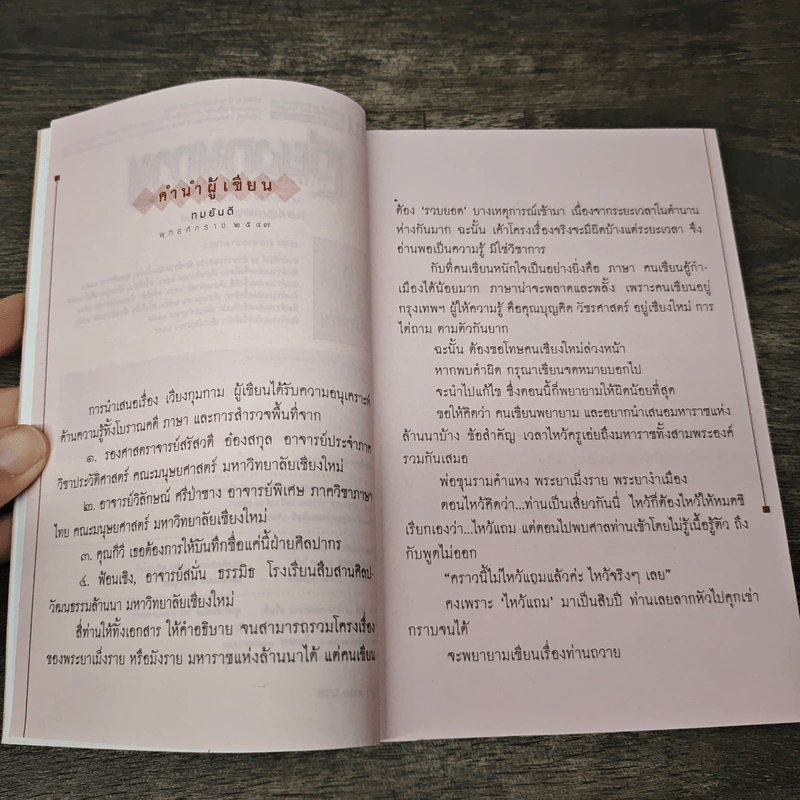 คำนำผู้เขียน
ทมยันตี
พุทธศักราช ๒๕๔๗
การนำเสนอเรื่อง เวียงกุมกาม ผู้เขียนได้รับความอนุเคราะห์
ด้านความรู้ทั้งโบราณคดี ภาษา และการสำรวจพื้นที่จาก
๑. รองศาสตราจารย์สรัสวดี อ๋องสกุล อาจารย์ประจำภาค
วิชาประวัติศาสตร์ คณะมนุษยศาสตร์ มหาวิทยาลัยเชียงใหม่
๒. อาจารย์วิลักษณ์ ศรีป่าซาง อาจารย์พิเศษ ภาควิชาภาษา
ไทย คณะมนุษยศาสตร์ มหาวิทยาลัยเชียงใหม่
๓. คุณกีวี เธอต้องการให้บันทึกชื่อแค่นี้ฝ่ายศิลปากร
๔. ฟ้อนเชิง, อาจารย์สนั่น ธรรมิธ โรงเรียนสืบสานศิลปะ-
วัฒนธรรมล้านนา มหาวิทยาลัยเชียงใหม่
สี่ท่านให้ทั้งเอกสาร ให้คำอธิบาย จนสามารถรวมโครงเรื่อง
ของพระยาเม็งราย หรือมังราย มหาราชแห่งล้านนาได้ แต่คนเขียน
ต้อง ‘รวบยอด’ บางเหตุการณ์เข้ามา เนื่องจากระยะเวลาในตำนาน
ห่างกันมาก ฉะนั้น เค้าโครงเรื่องจริงจะมีผิดบ้างแต่ระยะเวลา จึง
อ่านพอเป็นความรู้ มิใช่วิชาการ
กับที่คนเขียนหนักใจเป็นอย่างยิ่งคือ ภาษา คนเขียนอู้กำ-
เมืองได้น้อยมาก ภาษาน่าจะพลาดและพลั้ง เพราะคนเขียนอยู่
กรุงเทพฯ ผู้ให้ความรู้ คือคุณบุญคิด วัชรศาสตร์ อยู่เชียงใหม่ การ
ไต่ถาม ตามตัวกันยาก
ฉะนั้น ต้องขอโทษคนเชียงใหม่ล่วงหน้า
หากพบคำผิด กรุณาเขียนจดหมายบอกไป
จะนำไปแก้ไข ซึ่งตอนนี้ก็พยายามให้ผิดน้อยที่สุด
ขอให้คิดว่า คนเขียนพยายาม และอยากนำเสนอมหาราชแห่ง
ล้านนาบ้าง ข้อสำคัญ เวลาไหว้ครูเอ่ยถึงมหาราชทั้งสามพระองค์
รวมกันเสมอ
พ่อขุนรามคำแหง พระยาเม็งราย พระยางำเมือง
ตอนไหว้คิดว่า...ท่านเป็นเสี่ยวกันนี่ ไหว้ก็ต้องไหว้ให้หมดซิ
เรียกเองว่า...ไหว้แถม แต่ตอนไปพบศาลท่านเข้าโดยไม่รู้เนื้อรู้ตัว ถึง
กับพูดไม่ออก
“คราวนี้ไม่ไหว้แถมแล้วค่ะ ไหว้จริงๆ เลย”
คงเพราะ ‘ไหว้แถม’ มาเป็นสิบปี ท่านเลยลากหัวไปคุกเข่า
กราบจนได้
จะพยายามเขียนเรื่องท่านถวาย